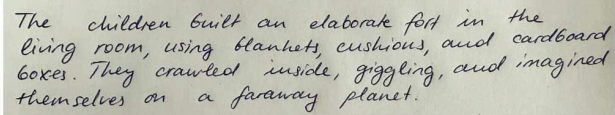 The children built an elaborate fort in the
living room, using blankets, cushions, and cardboard
boxes. They crawled inside, giggling, and imagined
themselves on a faraway planet.